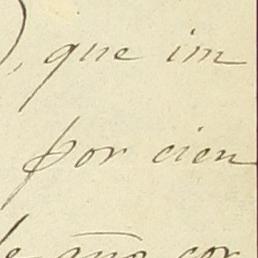 ), que im
por cien
de año cor